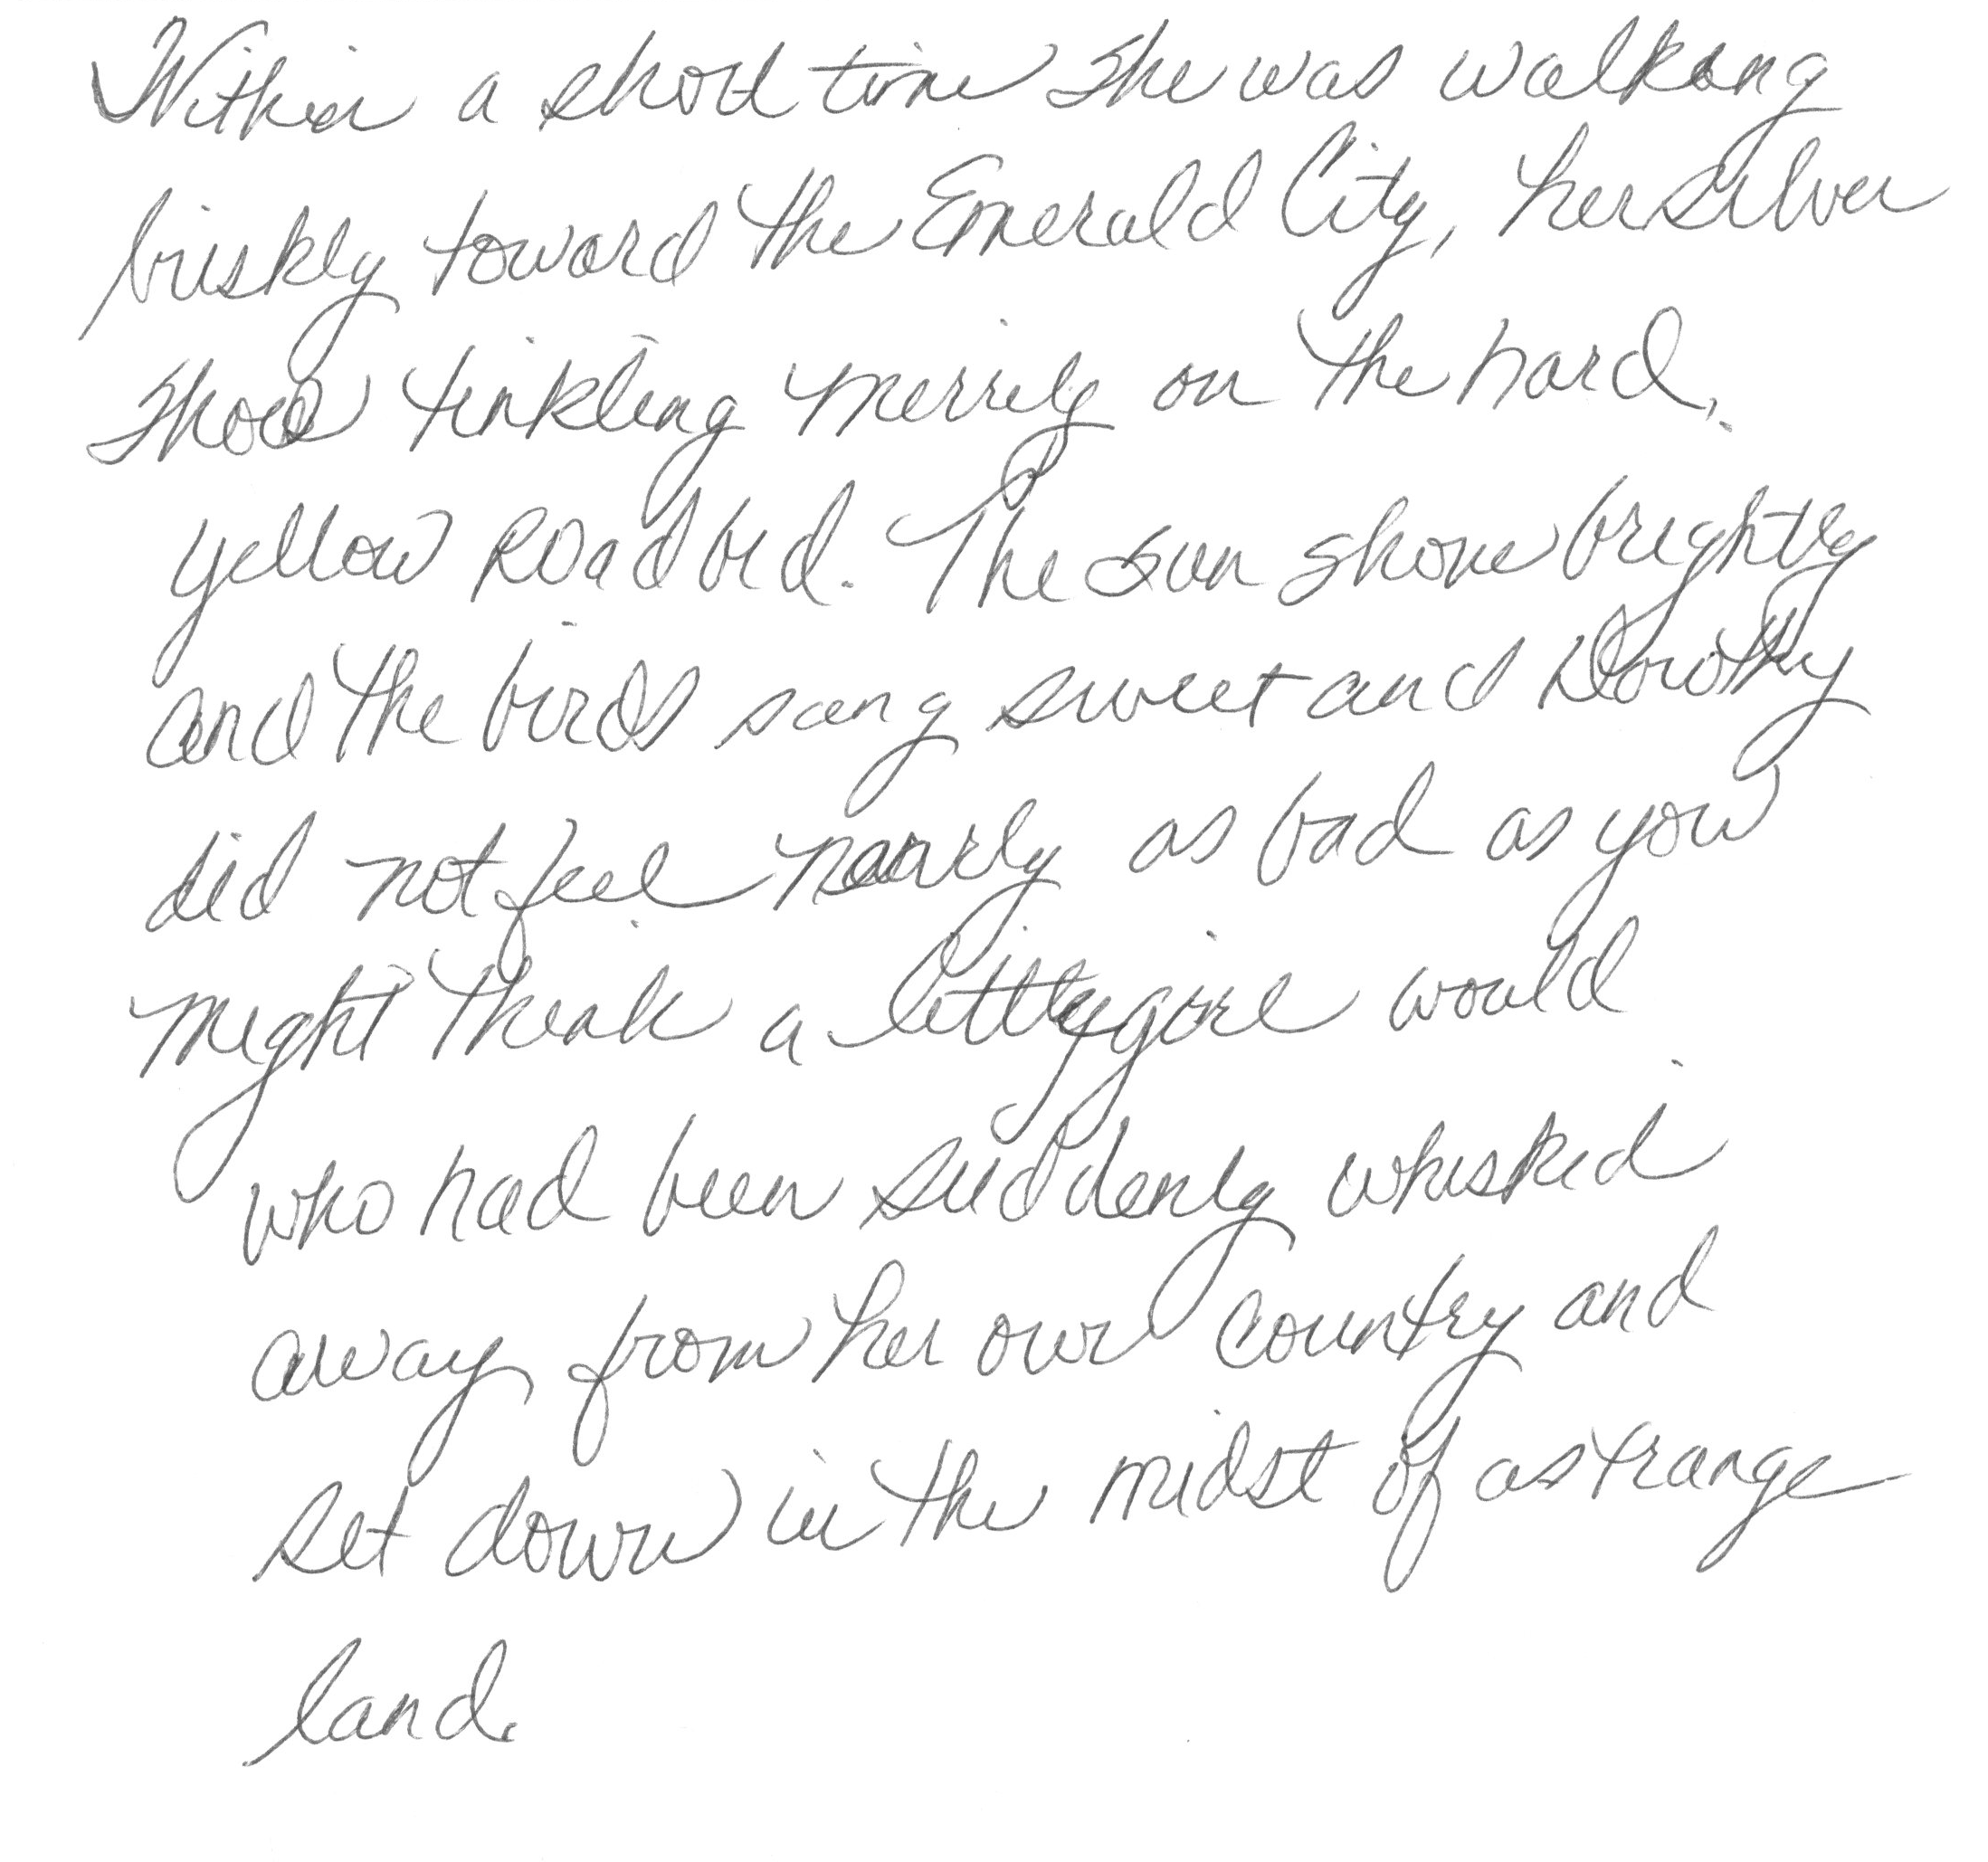 Within a short time she was walking
briskly toward the Emerald City, her silver
shoes tinkling merrily on the hard,
yellow roadbed. The sun shone brightly
and the birds sang sweet and Dorothy
did not feel nearly as bad as you
might think a little girl would
who had been suddenly whisked
away from her own country and
set down in the midst of a strange
land.